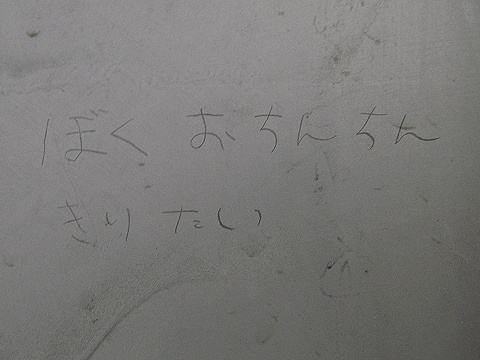 ぼく おちんちん
きりたい